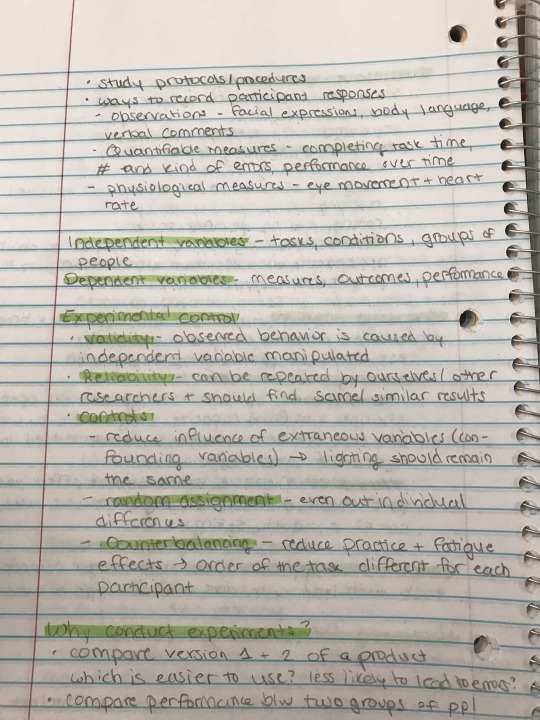 • study protocols/procedures
• ways to record participant responses
- observations - facial expressions, body language,
verbal comments
- Quantifiable measures - completing task time,
# and kind of errors, performance over time
- physiological measures - eye movement + heart
rate
Independent variables - tasks, conditions, groups of
people
Dependent variables - measures, outcomes, performance
Experimental control
• validity - observed behavior is caused by
independent variable manipulated
• Reliability - can be repeated by ourselves/other
researchers + should find same/similar results
• controls
- reduce influence of extraneous variables (con-
founding variables) → lighting should remain
the same
- random assignment - even out individual
differences
- Counterbalancing - reduce practice + fatigue
effects → order of the task different for each
participant
Why conduct experiments?
• compare version 1 + 2 of a product
which is easier to use? less likely to lead to errors?
• compare performance b/w two groups of ppl